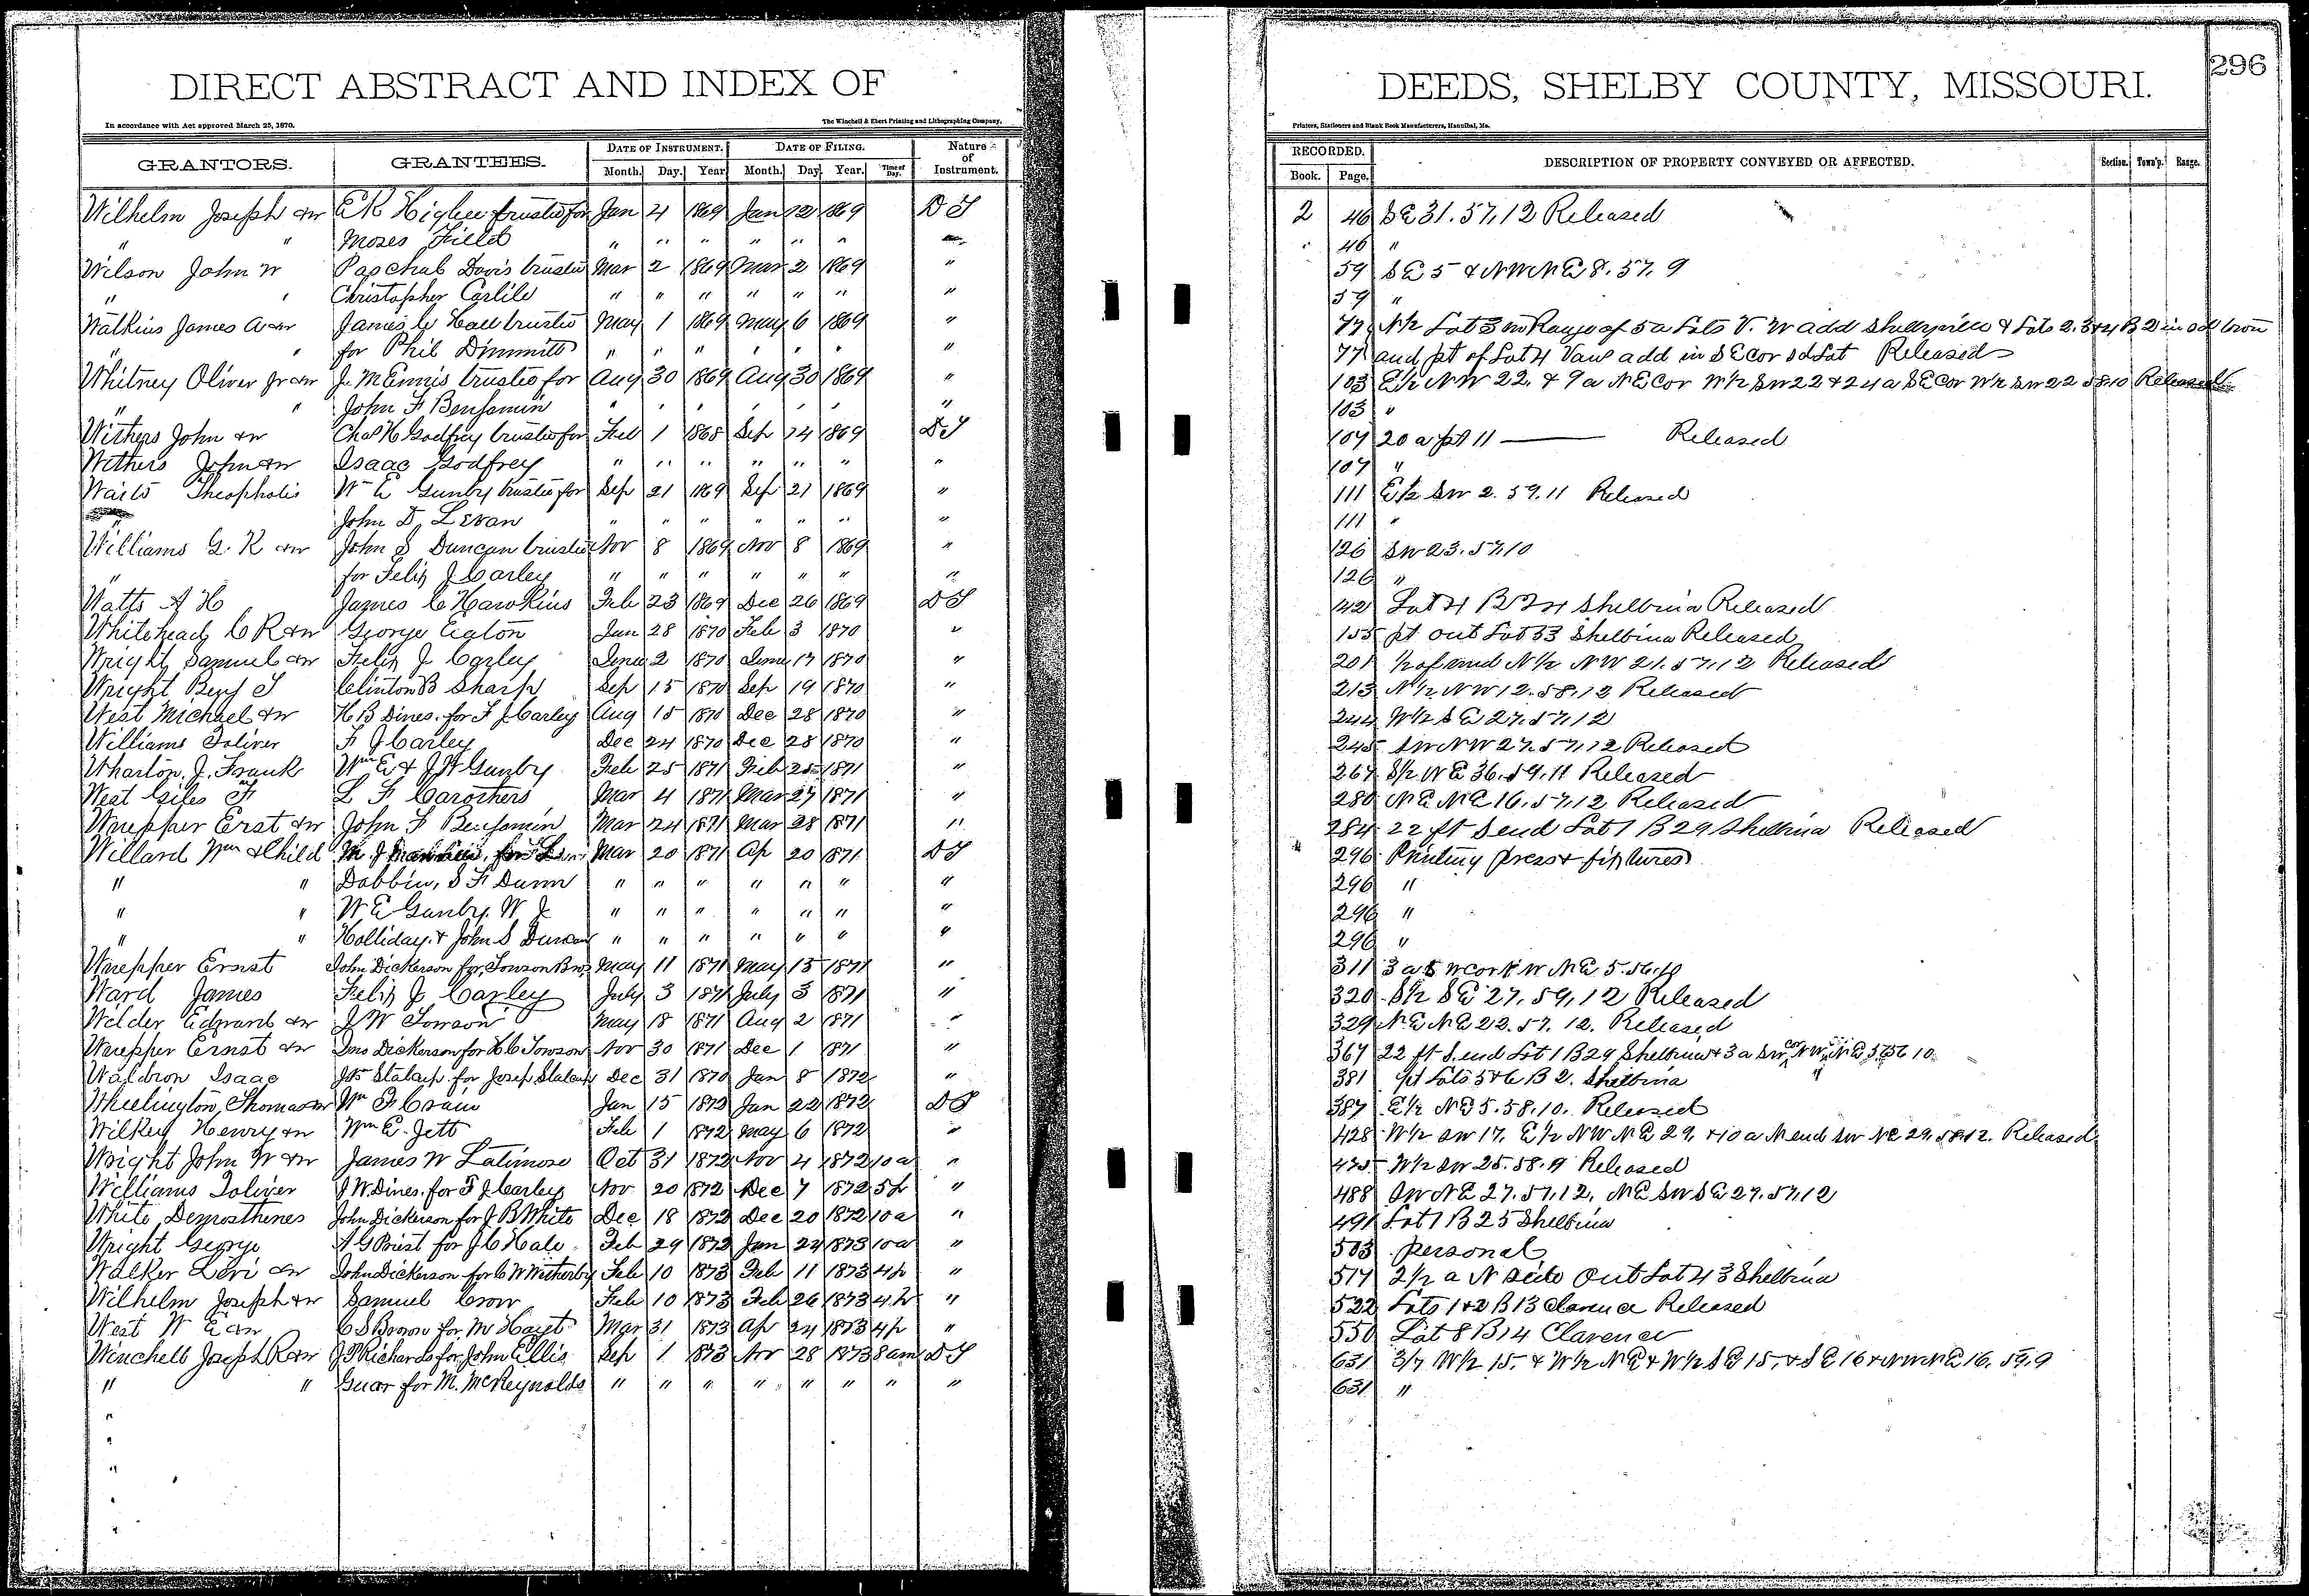 296
DIRECT ABSTRACT AND INDEX OF DEEDS, SHELBY COUNTY, MISSOURI.
In accordance with Act approved March 25, 1870. The Winchell & Ebert Printing and Lithographing Company, Printers, Stationers and Blank Book Manufacturers, Hannibal, Mo.
GRANTORS. GRANTEES. DATE OF INSTRUMENT. DATE OF FILING. Nature of Instrument. RECORDED. DESCRIPTION OF PROPERTY CONVEYED OR AFFECTED. Section. Town'p. Range.
Month. Day. Year Month. Day. Year. Time of Day. Book. Page.
Wilhelm Joseph &w E K Higbee trustee for Jan 4 1869 Jan 12 1869 D T 2 46 SE 31.57.12 Released
" " Moses Field " " " " " " 46 "
Wilson John W Paschal Davis trustee Mar 2 1869 Mar 2 1869 " 59 SE 5 & NW NE 8.57.9
" " Christopher Carlile " " " " " " " 59 "
Watkins James A &w James C Hall trustee May 1 1869 May 6 1869 " 77 N½ Lot 3 in Range of 5 a Lots V. W add Shelbyville & Lots 2.3&4 B 2 in old town
" " for Phil Dimmitt " " " " " " " 77 and pt of Lot 4 Vans add in SE cor sd Lot Released
Whitney Oliver Jr &w J. M Ennis trustee for Aug 30 1869 Aug 30 1869 " 103 E½ NW 22. & 9 a NE Cor W½ SW 22 & 24 a SE Cor W½ SW 22 58.10 Released
" " John F Benjamin " " " " " " " 103 "
Withers John &w Chas H Godfrey trustee for Feb 1 1868 Sep 14 1869 D T 107 20 a pt 11 Released
Withers John &w Isaac Godfrey " " " " " " " 107 "
Waits Theopholis Wm E Gunby trustee for Sep 21 1869 Sep 21 1869 " 111 E½ SW 2.59.11 Released
" John D. Levan " " " " " " " 111 "
Williams G. K &w John S Duncan trustee Nov 8 1869 Nov 8 1869 " 126 SW 23.57.10
" for Felix J Carley " " " " " " " 126 "
Watts A H James C Hawkins Feb 23 1869 Dec 26 1869 D T 142 Lot 4 B 24 Shelbina Released
Whitehead C R &w George Eaton Jan 28 1870 Feb 3 1870 " 155 pt out Lot 33 Shelbina Released
Wright Samuel &w Felix J Carley June 2 1870 June 17 1870 " 201 ½ of und N½ NW 21.57.12 Released
Wright Benj T Clinton B Sharp Sep 15 1870 Sep 19 1870 " 213 N½ NW 12.58.12 Released
West Michael &w H B Dines. for F J Carley Aug 15 1870 Dec 28 1870 " 244 W½ SE 27.57.12
Williams Toliver F J Carley Dec 24 1870 Dec 28 1870 " 245 SW NW 27.57.12 Released
Wharton, J. Frank Wm E & J H Gunby Feb 25 1871 Feb 25 1871 " 267 S½ NE 36.59.11 Released
West Giles F L F Carothers Mar 4 1871 Mar 27 1871 " 280 NE NE 16.57.12 Released
Wnepper Erst &w John F Benjamin Mar 24 1871 Mar 28 1871 " 284 22 ft S end Lot 1 B 29 Shelbina Released
Willard Wm & Child M J Mar 20 1871 Ap 20 1871 D T 296 Printing press & fixtures
" " Dobbin, S F Dunn " " " " " " " 296 "
" " W E Gunby. W J " " " " " " " 296 "
" " Holliday. & John S Duncan " " " " " " " 296 "
Wnepper Ernst John Dickerson for Towson Bros May 11 1871 May 15 1871 " 311 3 a S W cor NW NE 5.56.10
Ward James Felix J Carley July 3 1871 July 3 1871 " 320 S½ SE 27.59.12 Released
Welder Edward &w J W Towson May 18 1871 Aug 2 1871 " 329 NE NE 22.57.12. Released
Wnepper Ernst &w Jno Dickerson for H C Towson Nov 30 1871 Dec 1 1871 " 367 22 ft S. end Lot 1 B 29 Shelbina & 3 a SW cor NW NE 5.56 10
Waldron Isaac Jos Stalcup for Josep Stalcup Dec 31 1870 Jan 8 1872 " 381 pt Lots 5&6 B 2. Shelbina "
Wheelington, Thomas &w Wm F Crain Jan 15 1872 Jan 22 1872 D T 387 E½ NE 5.58.10. Released
Wilkey Henry &w Wm E. Jett Feb 1 1872 May 6 1872 " 428 W½ SW 17. E½ NW NE 29. & 10 a N end SW NE 29.58.12. Released
Wright John W &w James W Latimore Oct 31 1872 Nov 4 1872 10 a " 475 W½ SW 25.58.9 Released
Williams Toliver J W. Dines. for F J Carley Nov 20 1872 Dec 7 1872 5 p " 488 SW NE 27.57.12. NE SW SE 27.57.12
White Demosthenes John Dickerson for J B White Dec 18 1872 Dec 20 1872 10 a " 491 Lot 1 B 25 Shelbina
Wright George A G Priest for J C Hale Feb 29 1872 Jan 24 1873 10 a " 503 personal
Walker Levi &w John Dickerson for C W Witherby Feb 10 1873 Feb 11 1873 4 p " 517 2½ a N side Out Lot 43 Shelbina
Wilhelm Joseph &w Samuel Crow Feb 10 1873 Feb 26 1873 4 p " 522 Lots 1&2 B 13 Clarence Released
West W E &w C S Brown for M Hoyt Mar 31 1873 Ap 24 1873 4 p " 550 Lot 8 B 14 Clarence
Winchell Joseph R &w J P Richards for John Ellis Sep 1 1873 Nov 28 1873 8 am D T 631 3/7 W½ 15. & W½ NE & W½ SE 15. & SE 16 & NW NE 16.59.9
" " Guar for M. McReynolds " " " " " " " " 631 "
"
"
"
"
"